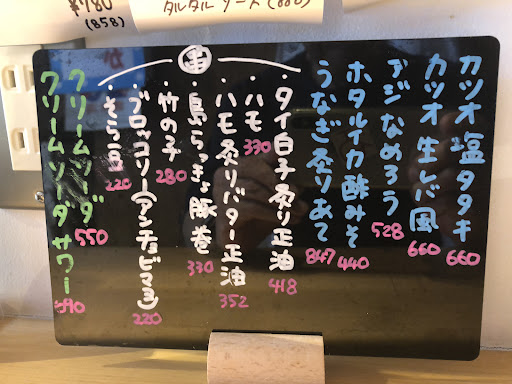 ¥780
(858)
タルタルソース(880)
カツオ 塩タタキ 660
カツオ 生レバ風 660
アジ なめろう 528
ホタルイカ酢みそ 440
うなぎ炙りあて 847
串
・タイ白子炙り正油 418
・ハモ 330
・ハモ炙りバター正油 352
・島らっきょ豚巻 330
・竹の子 280
・ブロッコリー(アンチョビマヨ) 220
・そら豆 220
クリームソーダ 550
クリームソーダサワー 590